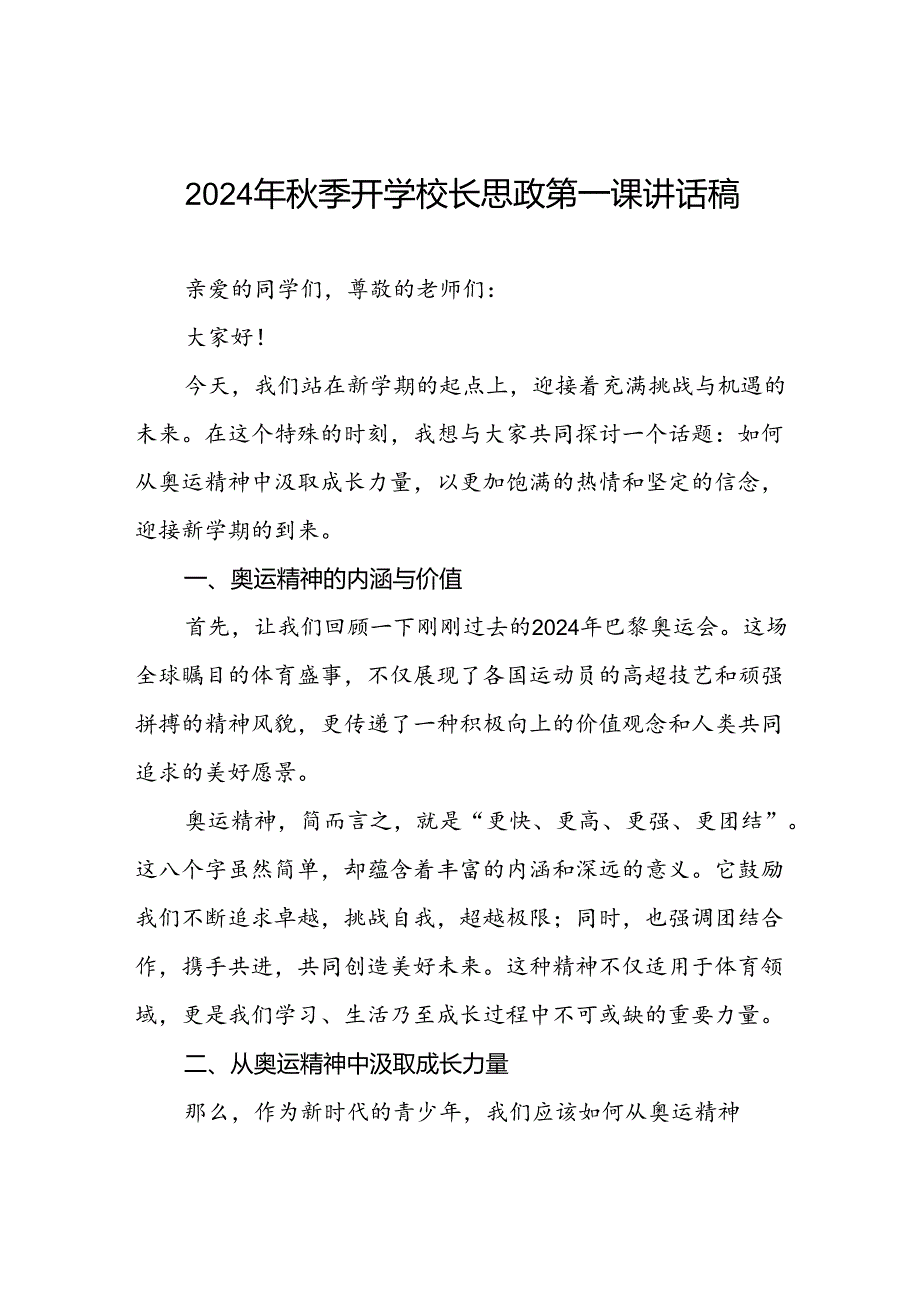 2024年秋季开学校长思政第一课讲话稿
亲爱的同学们，尊敬的老师们：
大家好！
今天，我们站在新学期的起点上，迎接着充满挑战与机遇的
未来。在这个特殊的时刻，我想与大家共同探讨一个话题：如何
从奥运精神中汲取成长力量，以更加饱满的热情和坚定的信念，
迎接新学期的到来。
一、奥运精神的内涵与价值
首先，让我们回顾一下刚刚过去的2024年巴黎奥运会。这场
全球瞩目的体育盛事，不仅展现了各国运动员的高超技艺和顽强
拼搏的精神风貌，更传递了一种积极向上的价值观念和人类共同
追求的美好愿景。
奥运精神，简而言之，就是“更快、更高、更强、更团结”。
这八个字虽然简单，却蕴含着丰富的内涵和深远的意义。它鼓励
我们不断追求卓越，挑战自我，超越极限；同时，也强调团结合
作，携手共进，共同创造美好未来。这种精神不仅适用于体育领
域，更是我们学习、生活乃至成长过程中不可或缺的重要力量。
二、从奥运精神中汲取成长力量
那么，作为新时代的青少年，我们应该如何从奥运精神